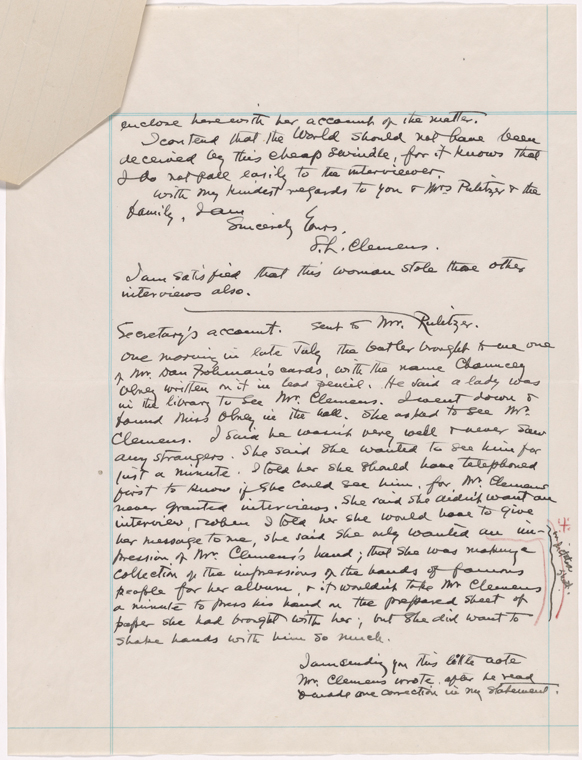 enclose herewith her account of the matter.
I contend that the World should not have been
deceived by this cheap swindle, for it knows that
I do not fall easily to the interviewer.
With my kindest regards to you & Mrs Pulitzer & the
family, I am
Sincerely Yours,
S. L. Clemens.
I am satisfied that this woman stole those other
interviews also.
Secretary's account. Sent to Mr. Pulitzer.
One morning in late July the butler brought to me one
of Mr. Dan Frohman's cards, with the name Chauncey
Olney written on it in lead pencil. He said a lady was
in the library to see Mr. Clemens. I went down &
found Miss Olney in the hall. She asked to see Mr.
Clemens. I said he wasn't very well & never saw
any strangers. She said she wanted to see him for
just a minute. I told her she should have telephoned
first to know if she could see him, for Mr. Clemens
never granted interviews. She said she didn't want an
interview, & when I told her she would have to give
her message to me, she said she only wanted an im-
pression of Mr. Clemens's hand; that she was making a
collection of the impressions of the hands of famous
people for her album, & it wouldn't take Mr Clemens
a minute to press his hand on the prepared sheet of
paper she had brought with her; but she did want to
shake hands with him so much.
I am sending you this little note
Mr. Clemens wrote after he read
& made one correction in my statement.